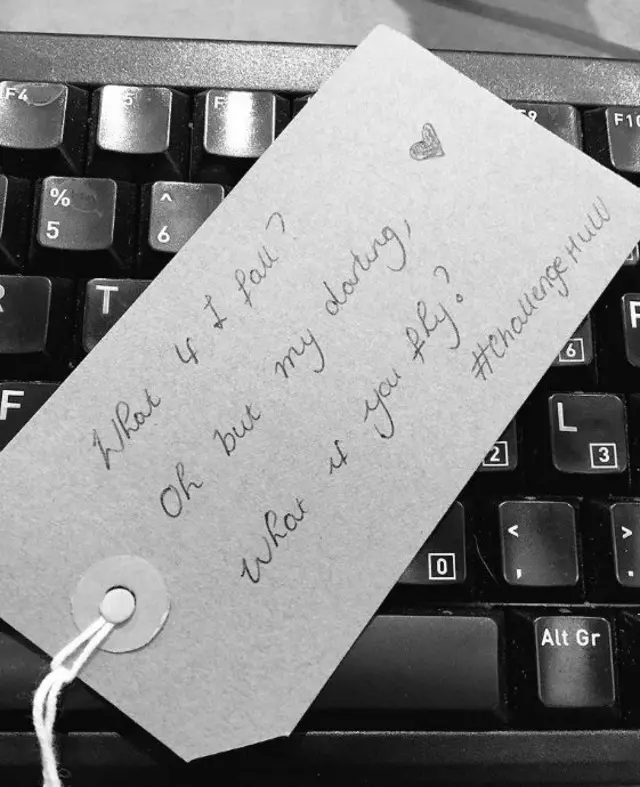 What if I fall?
Oh but my darling,
What if you fly?
#ChallengeHUW
F4
F5
F9
F10
%
5
^
6
R
T
F
6
P
L
3
2
0
<
,
>
.
Alt Gr